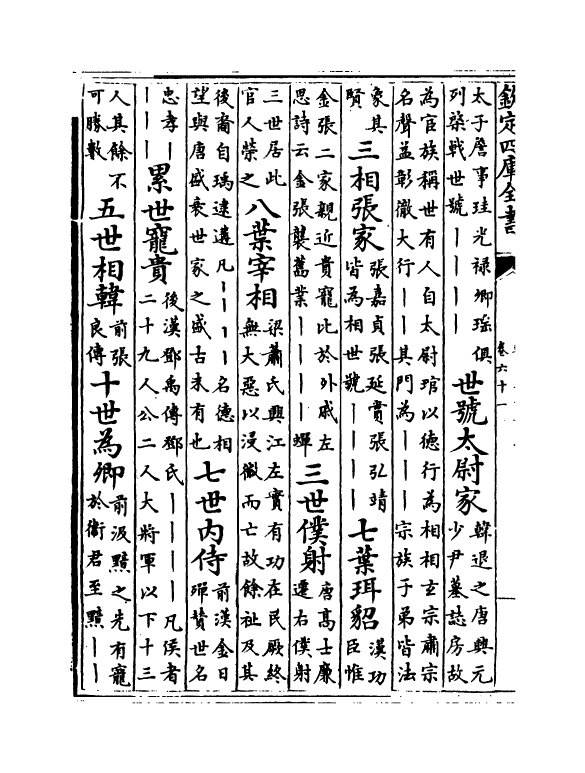 欽定四庫全書
卷六十一
太子詹事珪光祿卿瑤俱
列棨戟世號丨丨丨丨
世號太尉家
韓退之唐興元
少尹墓誌房故
為官族稱世有人自太尉琯以德行為相相玄宗肅宗
名聲益彰徹大行丨丨其門為丨丨丨丨宗族子弟皆法
象其
賢
三相張家
張嘉貞張延賞張弘靖
皆為相世號丨丨丨丨
七葉珥貂
漢功
臣惟
金張二家親近貴寵比於外戚左
思詩云金張襲舊業丨丨丨丨蟬
三世僕射
唐高士廉
遷右僕射
三世居此
官人榮之
八葉宰相
梁蕭氏興江左實有功在民厥終
無大惡以浸微而亡故餘祉及其
後裔自瑀逮遘凡丨丨丨丨名德相
望與唐盛衰世家之盛古未有也
七世内侍
前漢金日
磾贊世名
忠孝丨
丨丨丨
累世寵貴
後漢鄧禹傳鄧氏丨丨丨丨凡侯者
二十九人公二人大將軍以下十三
人其餘不
可勝數
五世相韓
前張
良傳
十世為卿
前汲黯之先有寵
於衛君至黯丨丨